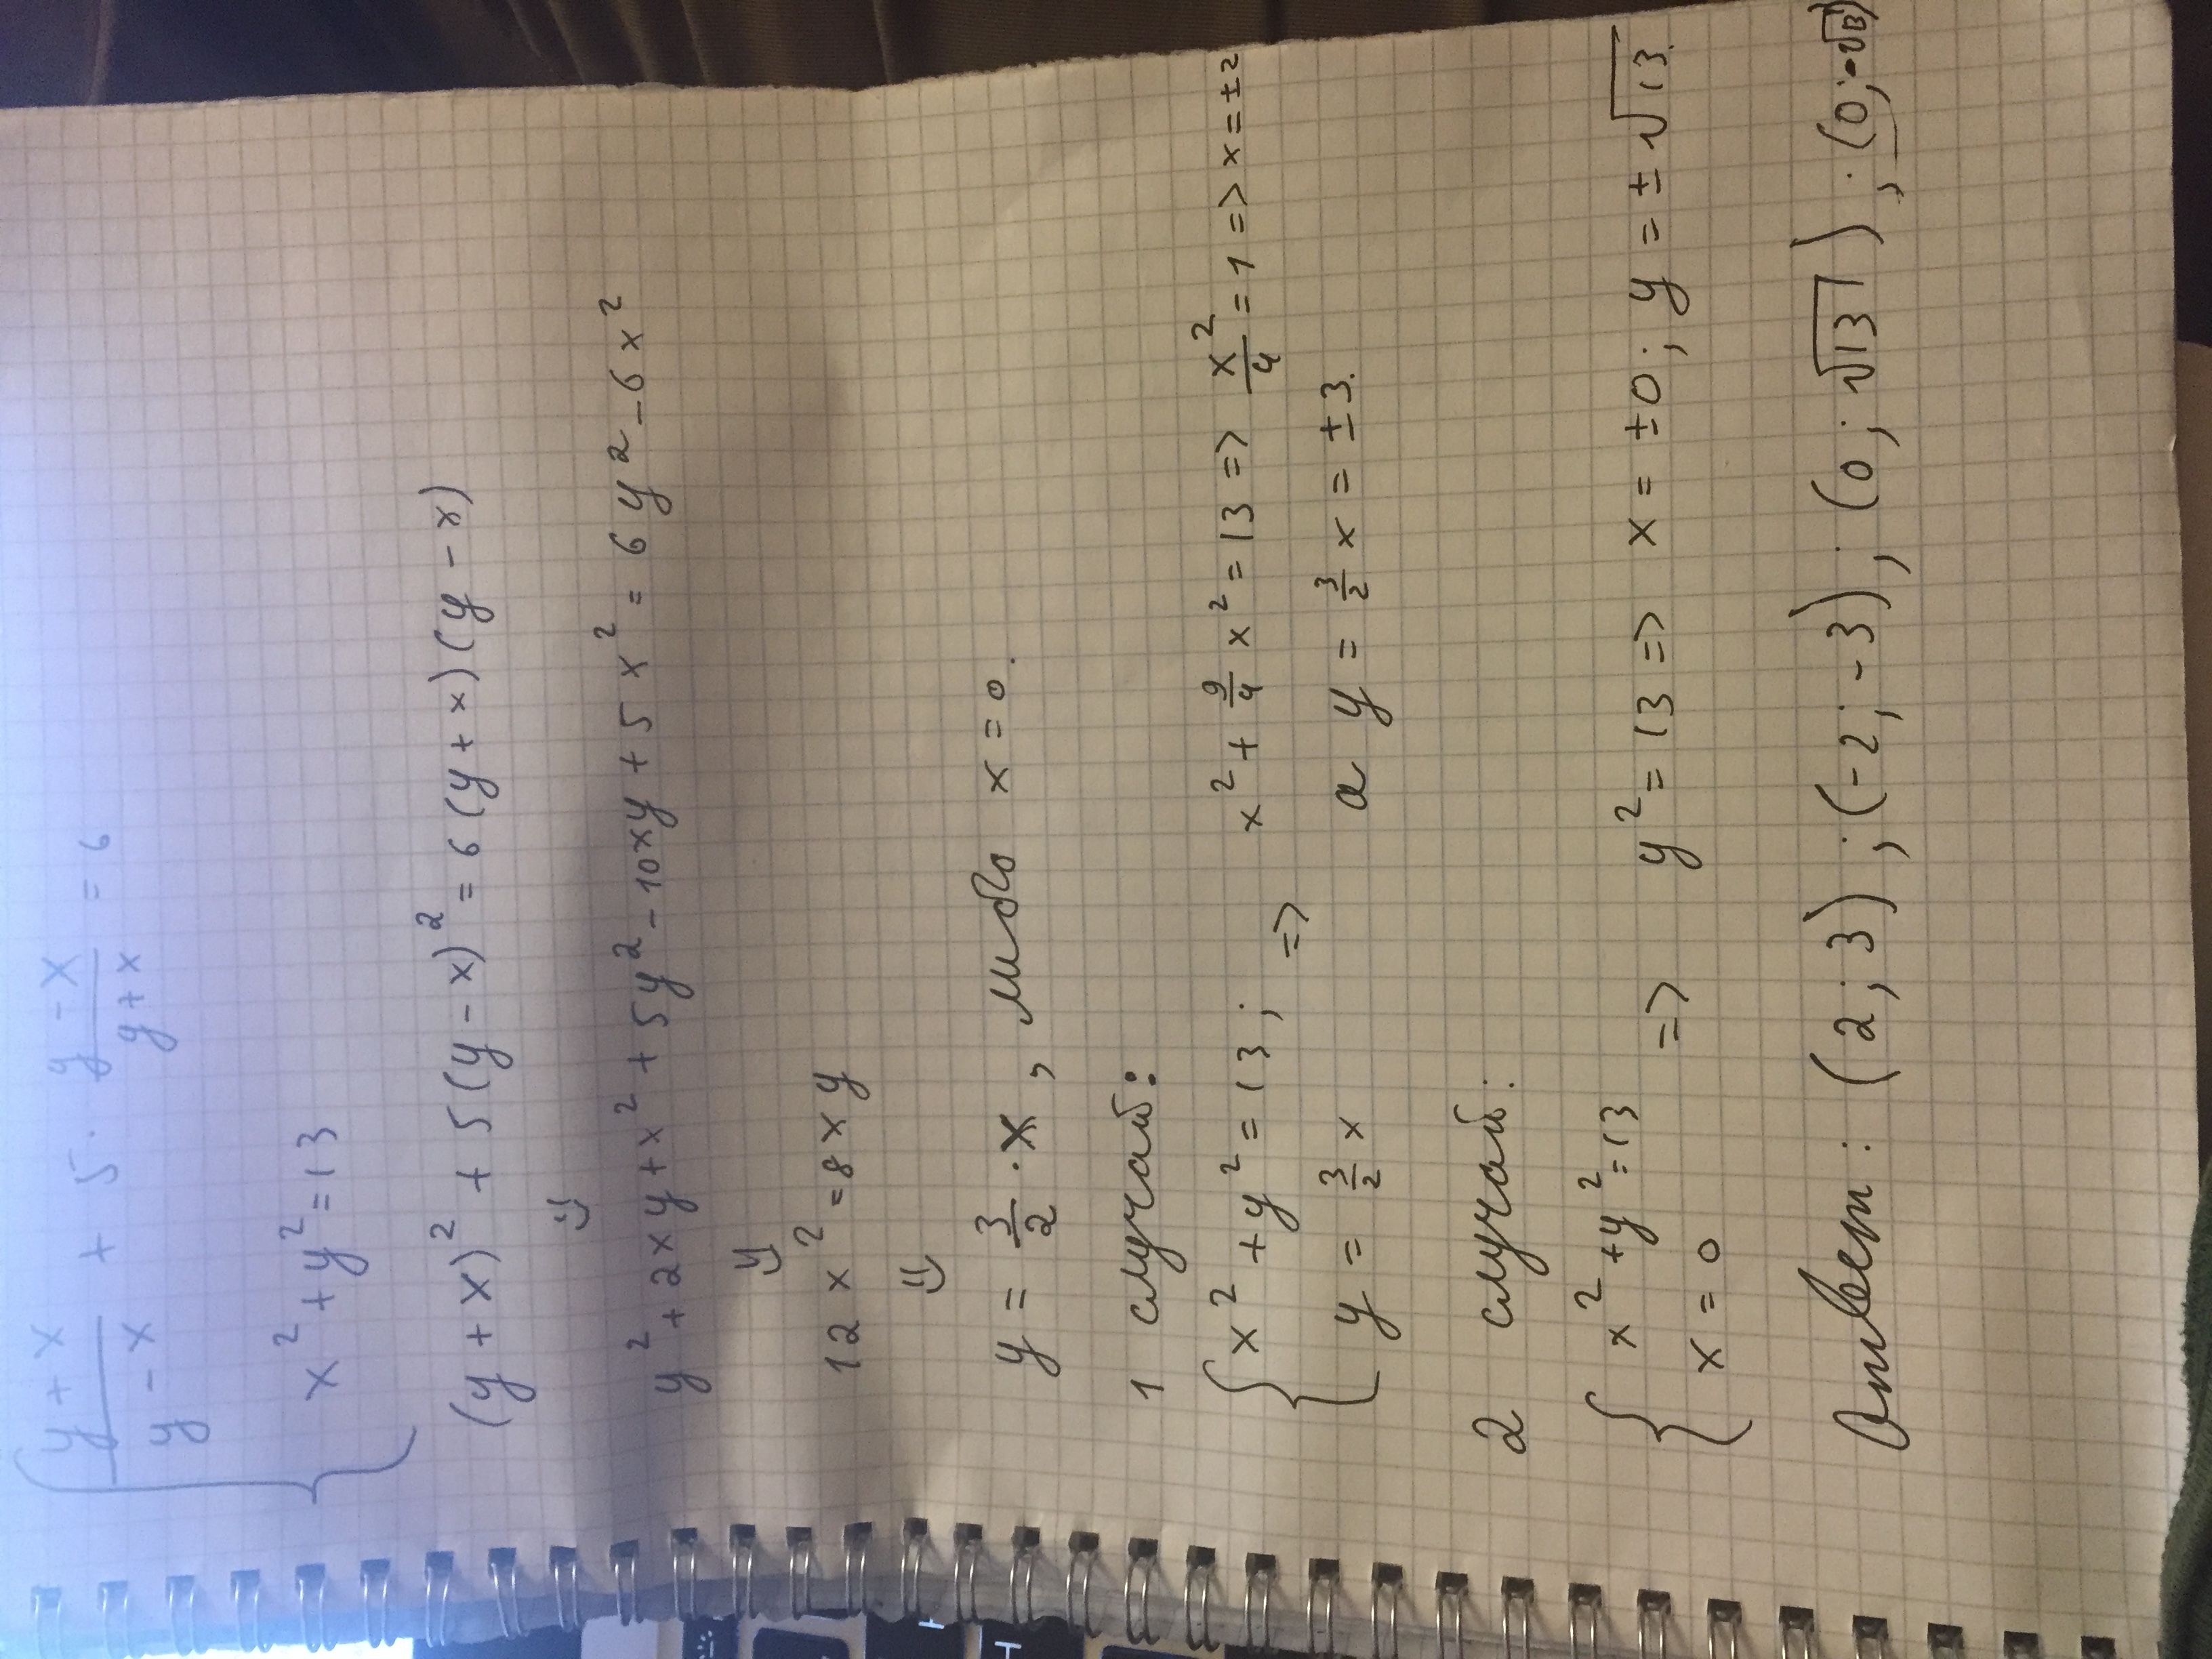 { (y + x)/(y - x) + 5 · (y - x)/(y + x) = 6
x² + y² = 13
(y + x)² + 5(y - x)² = 6(y + x)(y - x)
⇓
y² + 2xy + x² + 5y² - 10xy + 5x² = 6y² - 6x²
⇓
12x² = 8xy
⇓
y = 3/2 · x, либо x = 0.
1 случай:
{ x² + y² = 13; => x² + 9/4 x² = 13 => x²/4 = 1 => x = ±2
y = 3/2 x а y = 3/2 x = ±3.
2 случай:
{ x² + y² = 13 => y² = 13 => x = ±0; y = ±√13.
x = 0
Ответ: (2; 3); (-2; -3); (0; √13); (0; -√13)